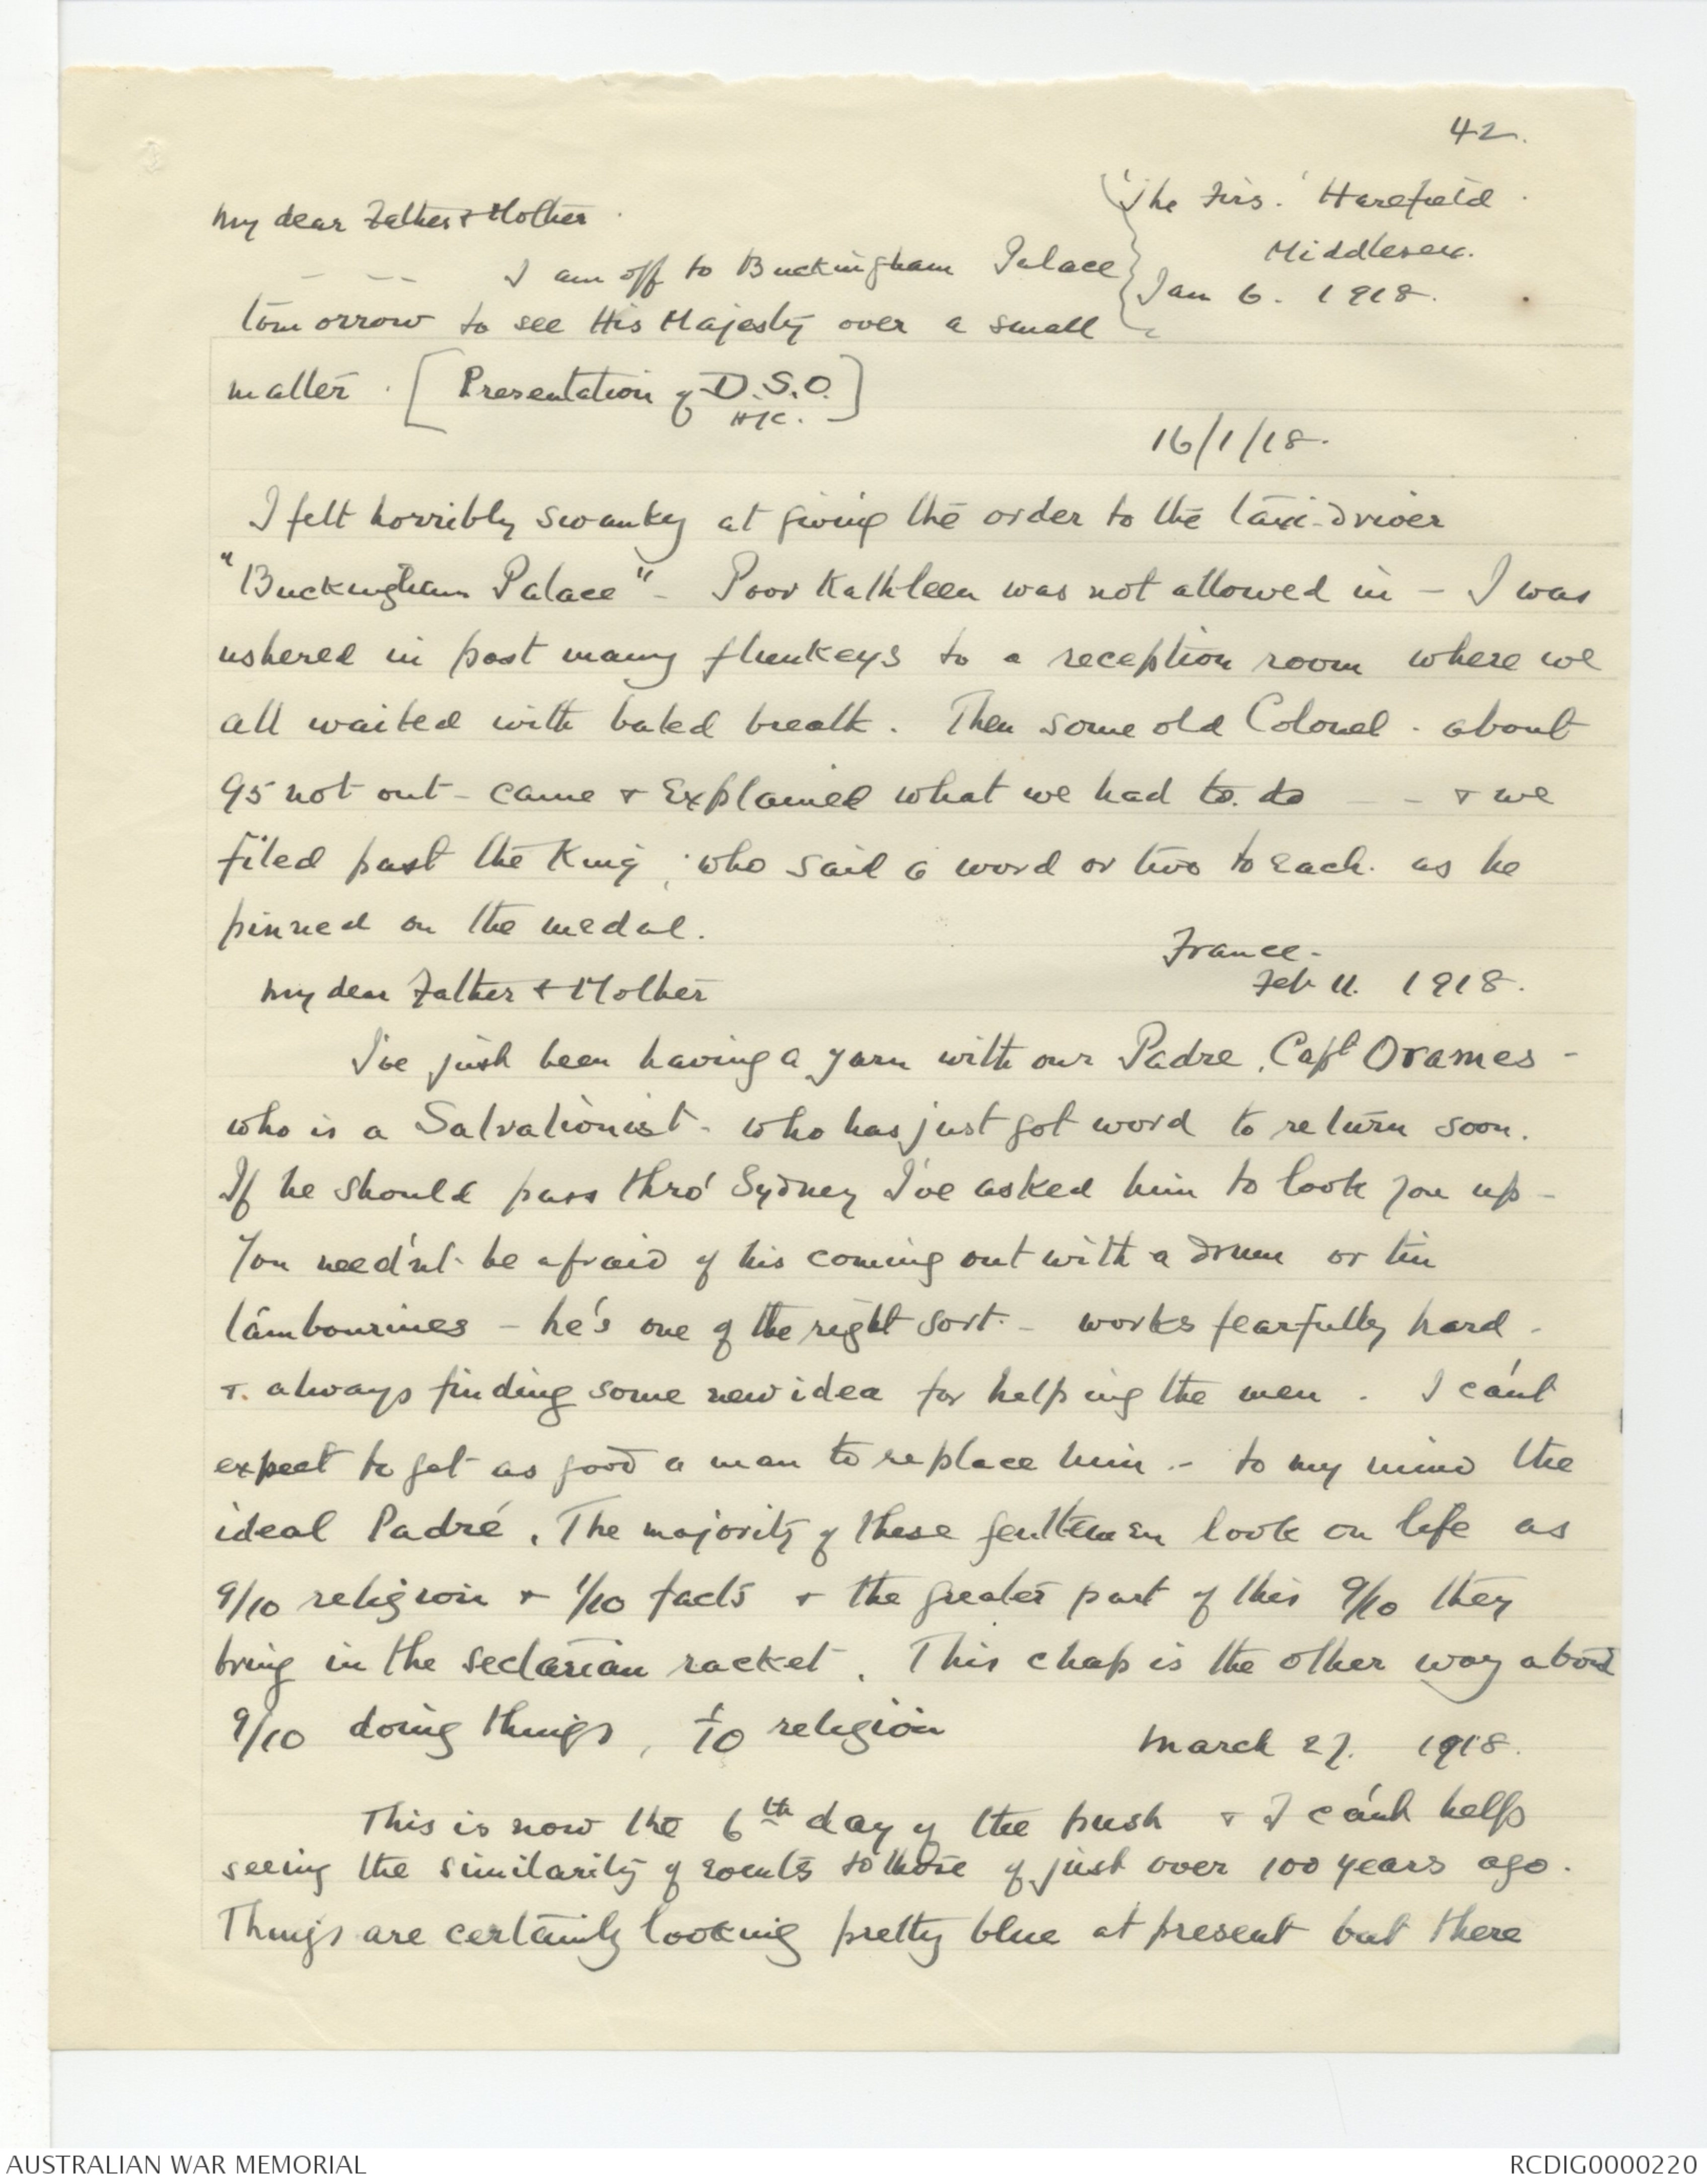 42.
'The Firs.' Harefield.
Middlesex.
Jan 6. 1918.
My dear Father & Mother.
— — — I am off to Buckingham Palace
tomorrow to see His Majesty over a small
matter. [Presentation of D.S.O.]
16/1/18.
I felt horribly swanky at giving the order to the taxi-driver
"Buckingham Palace" - Poor Kathleen was not allowed in - I was
ushered in past many flunkeys to a reception room where we
all waited with bated breath. Then some old Colonel - about
95 not out - came & explained what we had to do - - & we
filed past the King, who said a word or two to each as he
pinned on the medal.
France.
Feb 11. 1918.
My dear Father & Mother
I've just been having a yarn with our Padre, Capt Orames -
who is a Salvationist - who has just got word to return soon.
If he should pass thro' Sydney I've asked him to look you up -
You need'nt be afraid of his coming out with a drum or tin
tambourines - he's one of the right sort - works fearfully hard -
& always finding some new idea for helping the men. I ca'nt
expect to get as good a man to replace him - to my mind the
ideal Padré. The majority of these gentlemen look on life as
9/10 religion & 1/10 facts & the greater part of this 9/10 they
bring in the sectarian racket. This chap is the other way about
9/10 doing things, 1/10 religion
March 27. 1918.
This is now the 6th day of the push & I ca'nt help
seeing the similarity of events to those of just over 100 years ago.
Things are certainly looking pretty blue at present but there
AUSTRALIAN WAR MEMORIAL
RCDIG0000220